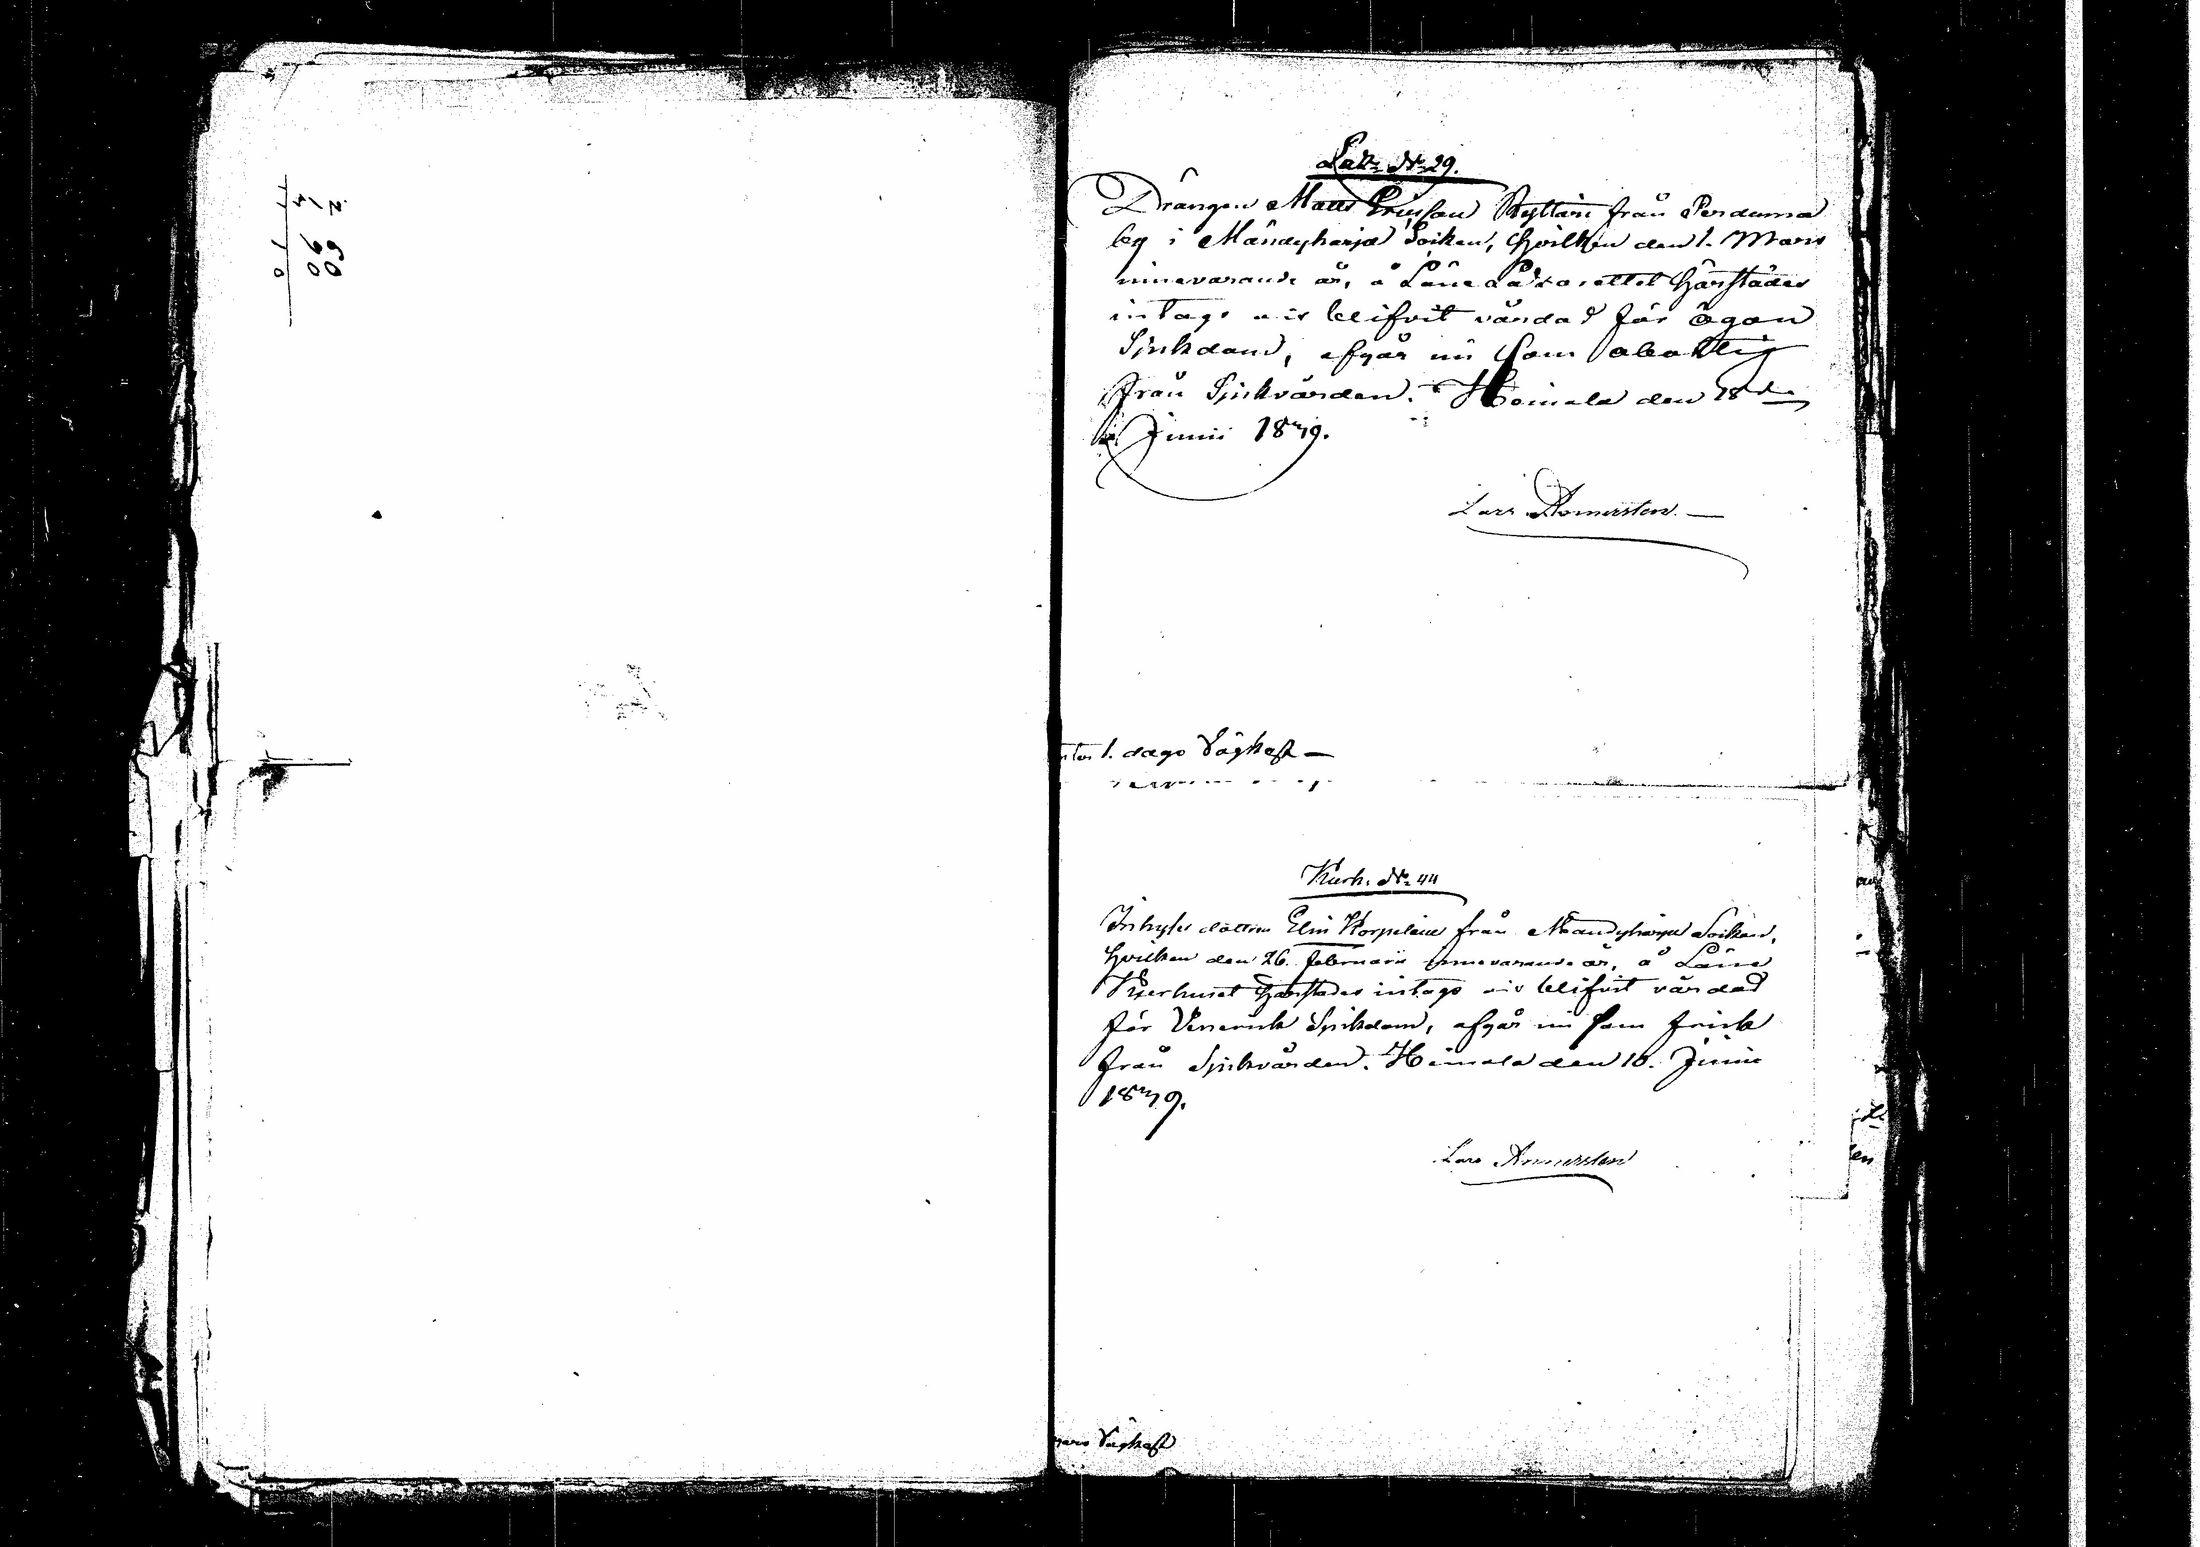 2 60
1 90
1 1 0
Laz: N: 29.
Drängen Matts Ericsson Ryttari från Perduma
by i Mändyharju Socken, hvilken den 1. Mars
innevarande år, å Läne Lazarettet härstädes
intagen blifvit vårdad för ögon
Sjukdom, afgår nu som obotlig
från Sjukvården. Heinola den 28de
Junii 1839.
Lars
1. dags Vägkost —
Kurh. N: 44
Inhyses dottren Elin Korpelain från Mändyharju Socken,
hvilken den 26. Februarii innevarande år, å Läne
Kurhuset härstädes intagen blifvit vårdad
för Venerisk Sjukdom, afgår nu som frisk
från Sjukvården. Heinola den 10. Junii
1839.
Lars
Vägkost